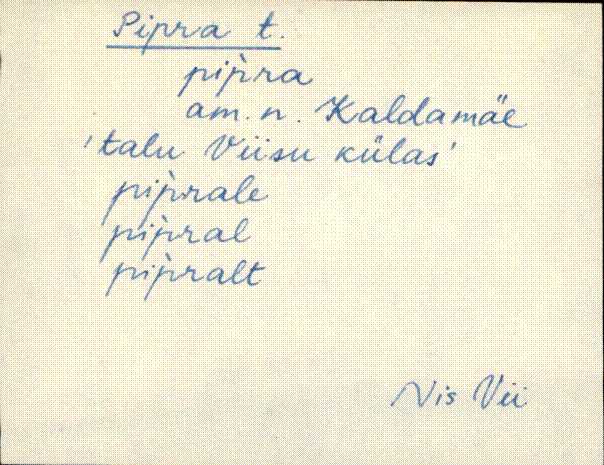 Pipra t.
pip̀ra
am. n. Kaldamäe
'talu Viisu külas'
pip̀rale
pip̀ral
pip̀ralt
Nis Vii